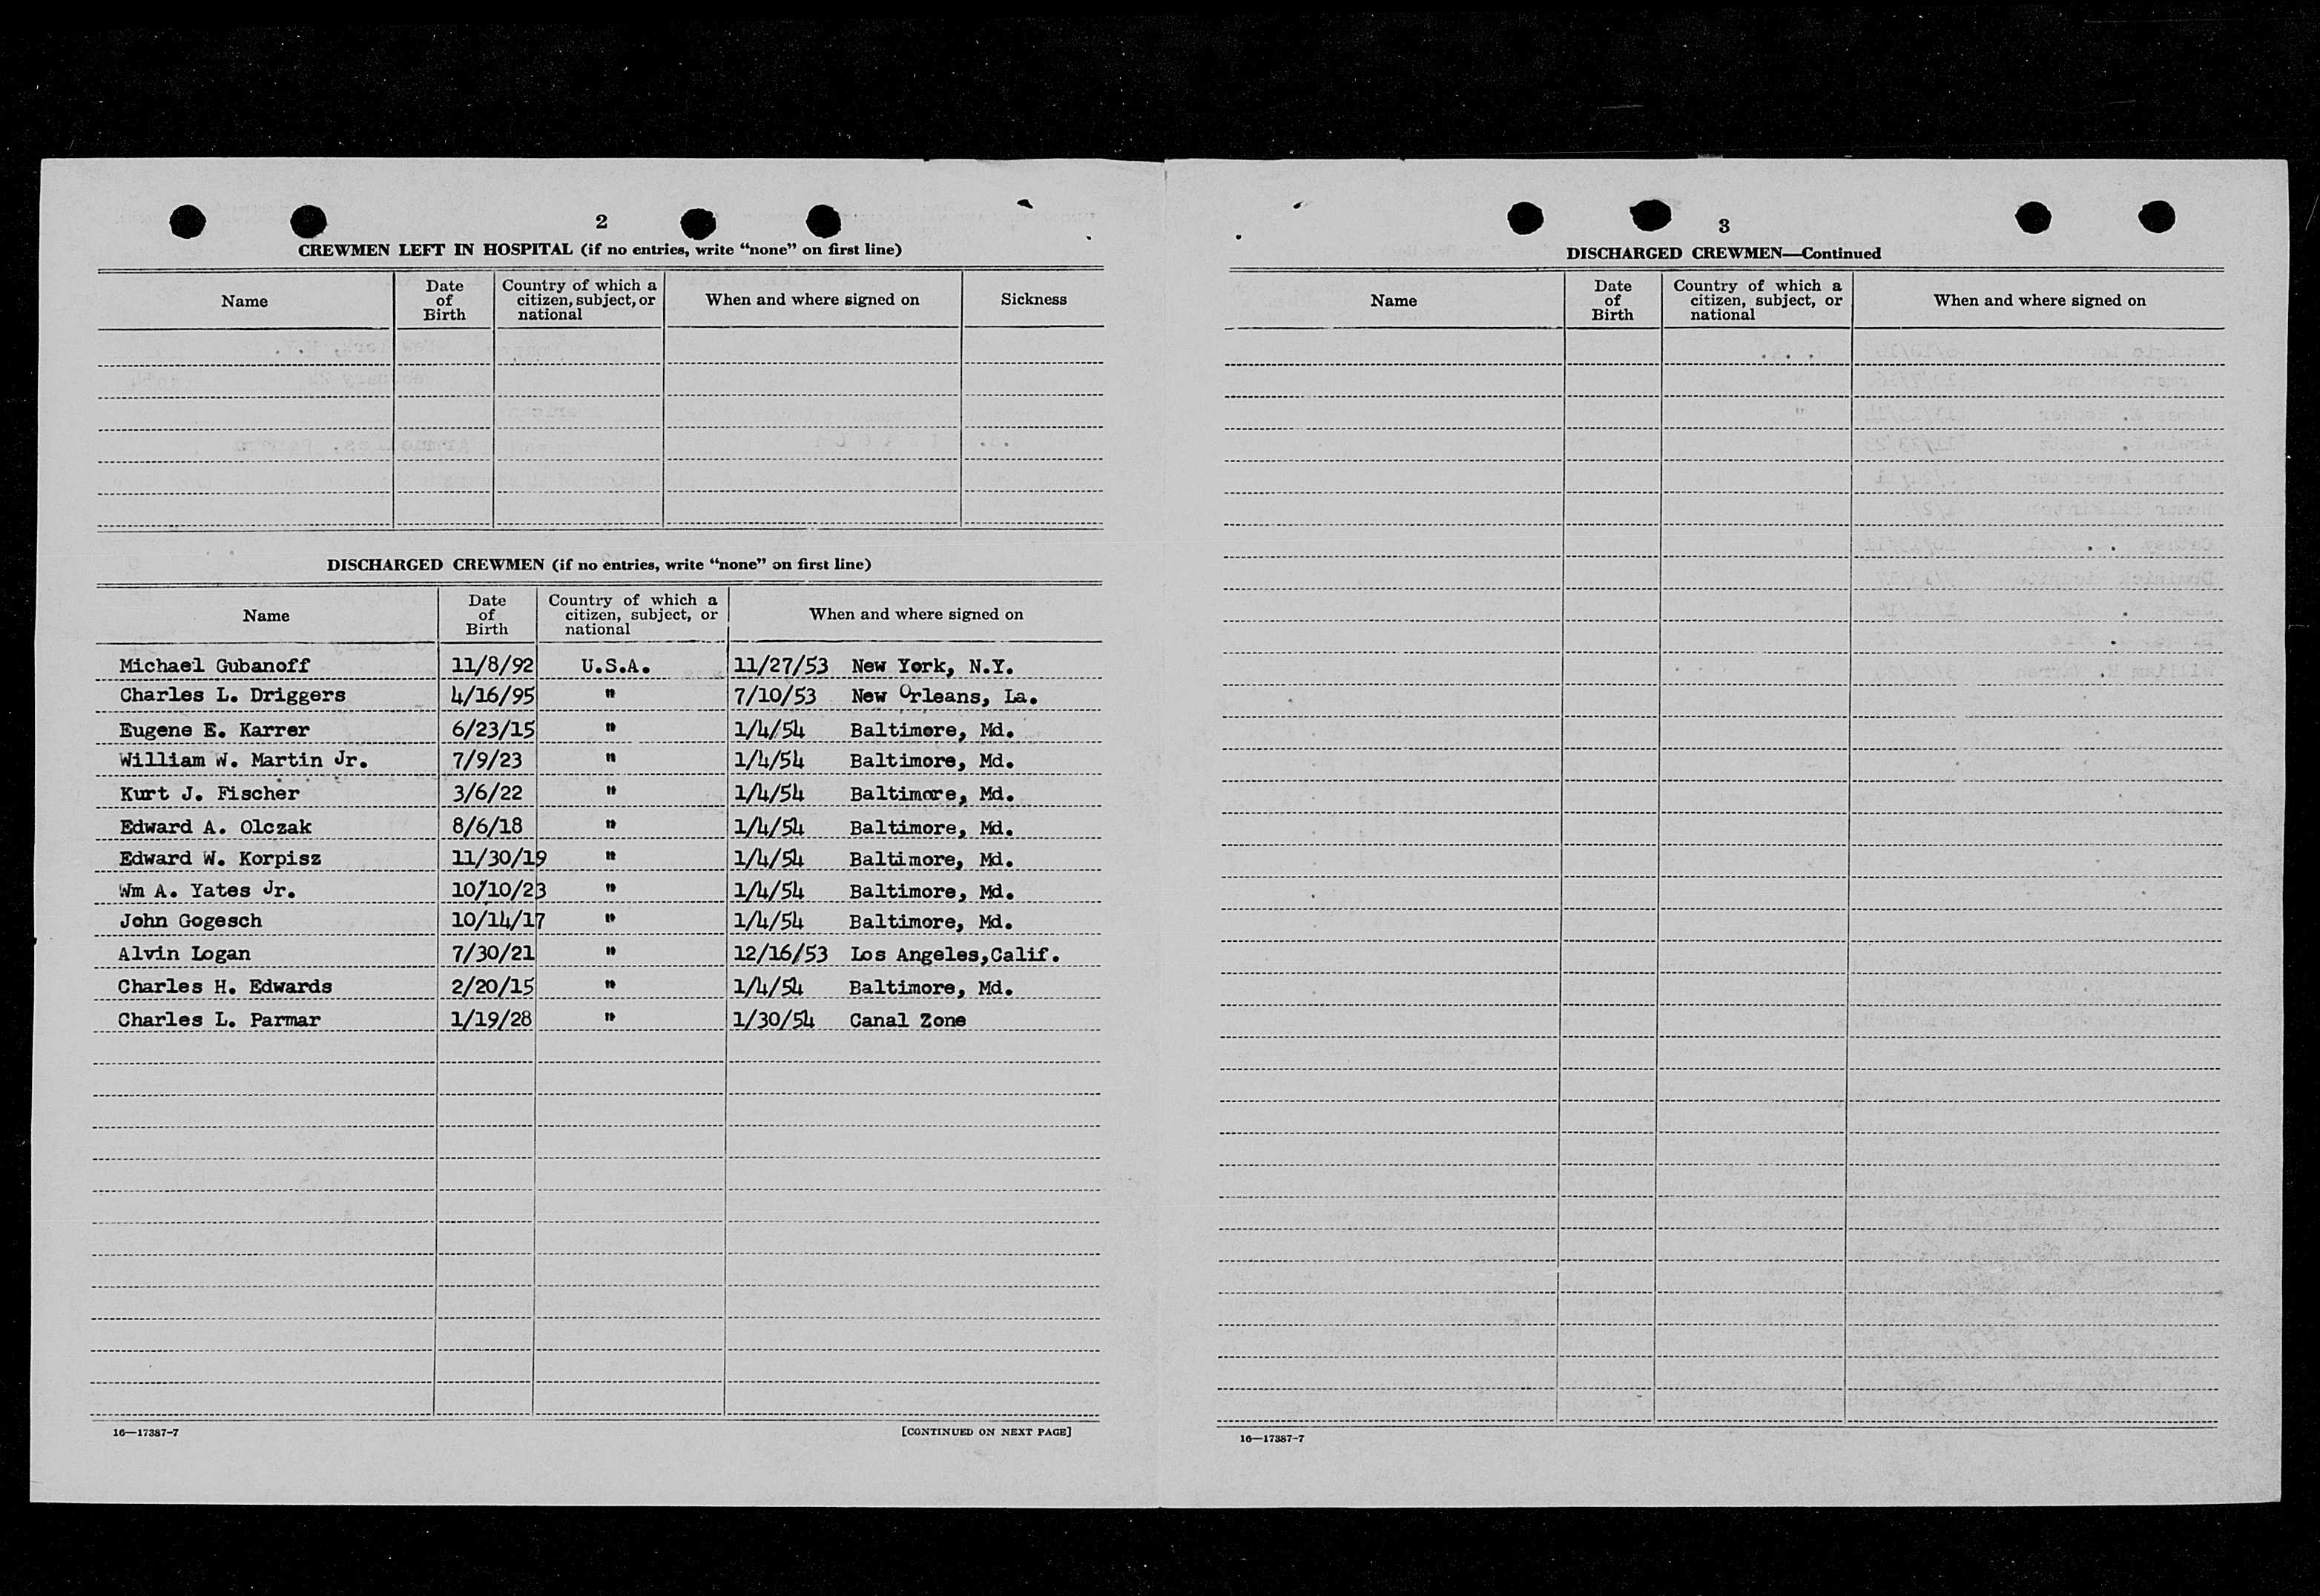 2
CREWMEN LEFT IN HOSPITAL (if no entries, write “none” on first line)
Name
Date of Birth
Country of which a citizen, subject, or national
When and where signed on
Sickness
DISCHARGED CREWMEN (if no entries, write “none” on first line)
Name
Date of Birth
Country of which a citizen, subject, or national
When and where signed on
Michael Gubanoff 11/8/92 U.S.A. 11/27/53 New York, N.Y.
Charles L. Driggers 4/16/95 " 7/10/53 New Orleans, La.
Eugene E. Karrer 6/23/15 " 1/4/54 Baltimore, Md.
William W. Martin Jr. 7/9/23 " 1/4/54 Baltimore, Md.
Kurt J. Fischer 3/6/22 " 1/4/54 Baltimore, Md.
Edward A. Olczak 8/6/18 " 1/4/54 Baltimore, Md.
Edward W. Korpisz 11/30/19 " 1/4/54 Baltimore, Md.
Wm A. Yates Jr. 10/10/23 " 1/4/54 Baltimore, Md.
John Gogesch 10/14/17 " 1/4/54 Baltimore, Md.
Alvin Logan 7/30/21 " 12/16/53 Los Angeles,Calif.
Charles H. Edwards 2/20/15 " 1/4/54 Baltimore, Md.
Charles L. Parmar 1/19/28 " 1/30/54 Canal Zone
16—17387-7 [CONTINUED ON NEXT PAGE]
3
DISCHARGED CREWMEN—Continued
Name
Date of Birth
Country of which a citizen, subject, or national
When and where signed on
16—17387-7